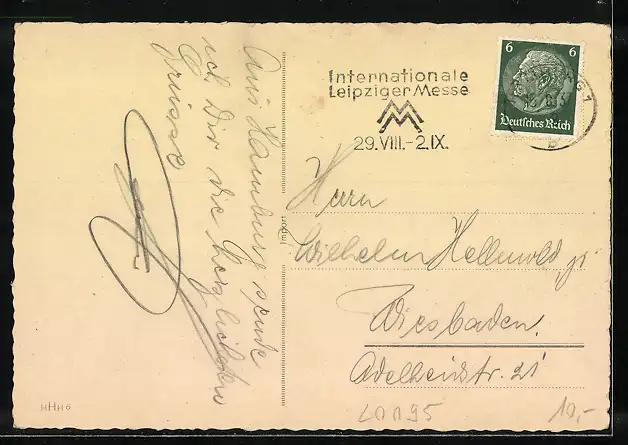 Aus Hamburg sende
ich Dir die herzlichsten
Grüsse
Internationale
Leipziger Messe
29.VIII.-2.IX.
6 6
Deutsches Reich
Herrn
Wilhelm Hellwold jr
Wiesbaden.
Adelheidstr. 21
L0195
10,-
HHH 6